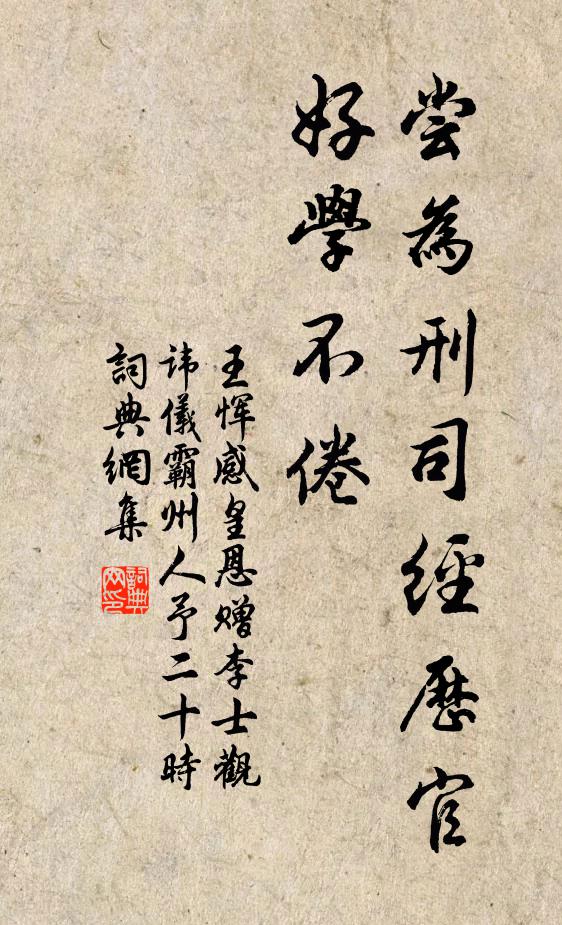 尝為刑司經歷官
好學不倦
王恽感皇恩赠李士觀
諱儀霸州人予二十時
詞典網集
詞典網印